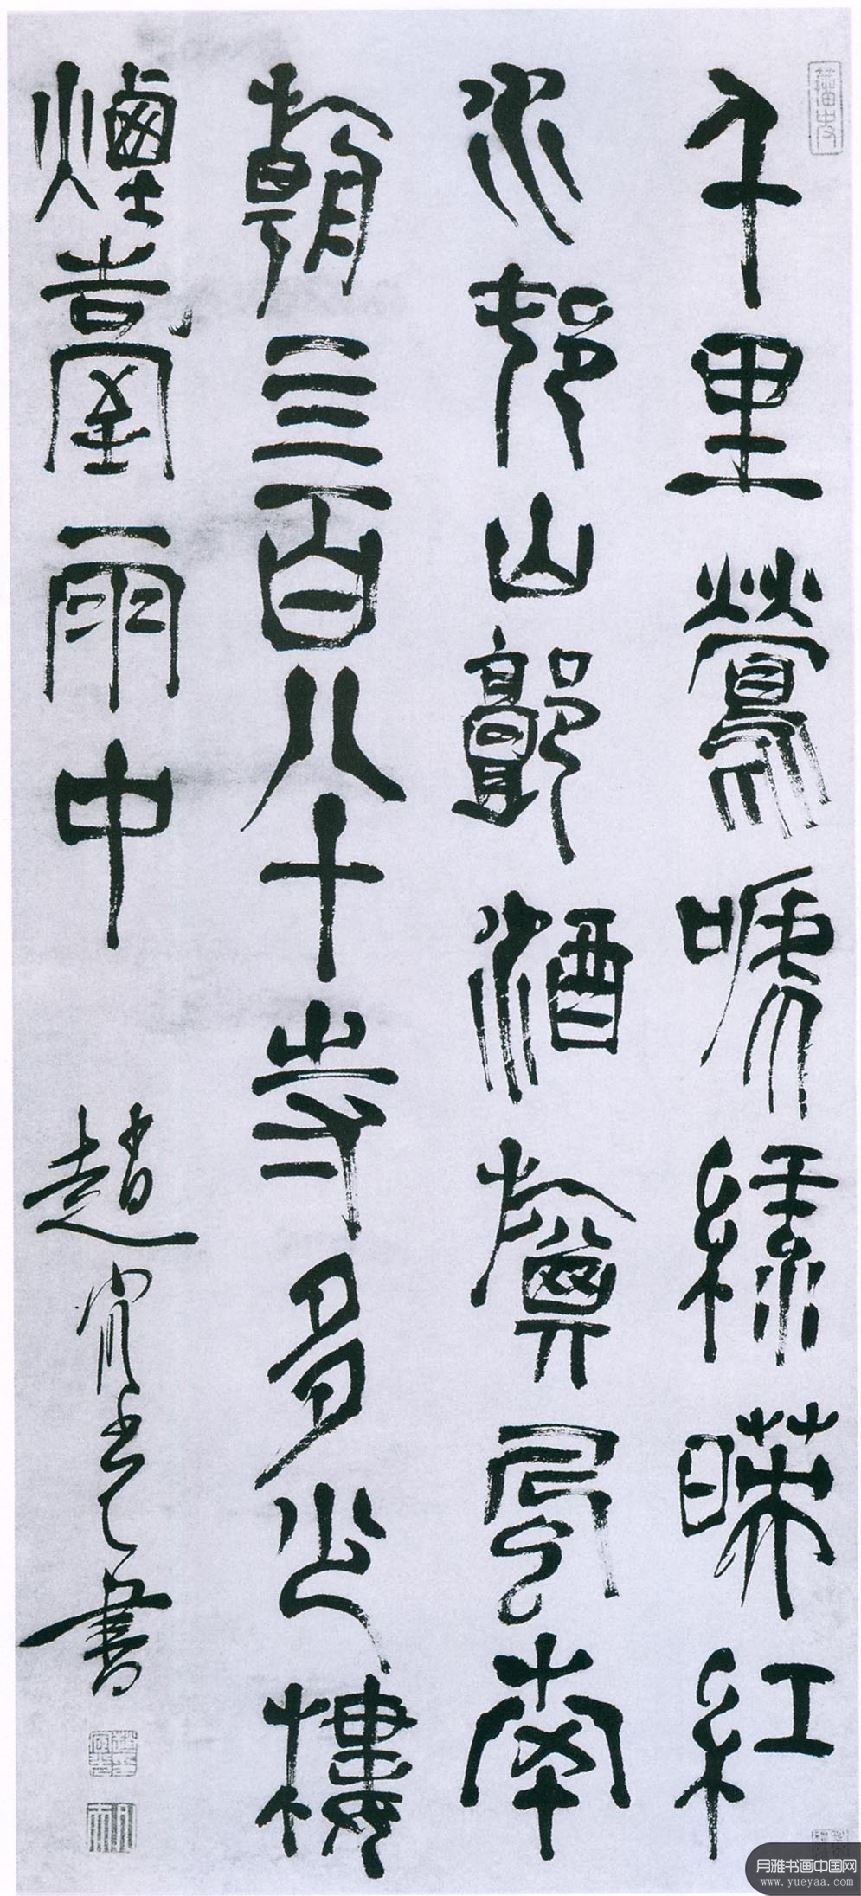 千里鶯嗁綠暎紅
水邨山郭酒旗風南
朝四百八十寺多少樓
煙臺雨中 趙宧光書
月雅书画中国网
www.yueyaa.com